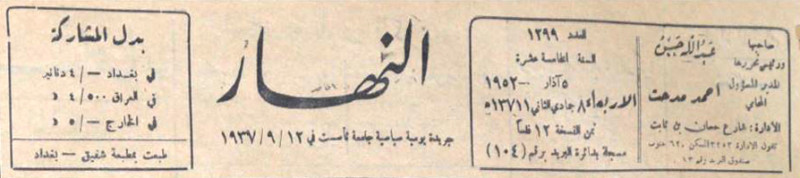 صاحبها
ورئيس تحريرها
عبدالله حسين
المدير المسؤول
المحامي
احمد مدحت
الادارة: شارع حسان بن ثابت
تلفون الادارة ٣٢٥٣ السكن ٦٢٠ جنوب
صندوق البريد رقم ١٣
العدد ١٢٩٩
السنة الخامسة عشرة
٥ آذار — ١٩٥٢
الاربعاء ٨ جمادي الثاني ١٣٧١١ه
ثمن النسخة ١٢ فلساً
مسجلة بدائرة البريد برقم (١٠٤)
النهار
جريدة يومية سياسية جامعة تأسست في ١٩٣٧/٩/١٢
بدل المشاركة
في بغداد —/٤ دنانير
في العراق ٤/٥٠٠ د
في الخارج —/٥ د
طبعت بمطبعة شفيق - بغداد